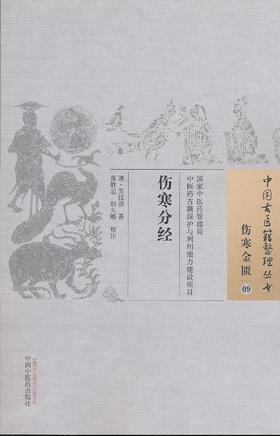 中国古医籍整理丛书
伤寒金匮
09
国家中医药管理局
中医药古籍保护与利用能力建设项目
伤寒分经
清·吴仪洛 著
张胜忠 胡久略 校注
中国中医药出版社